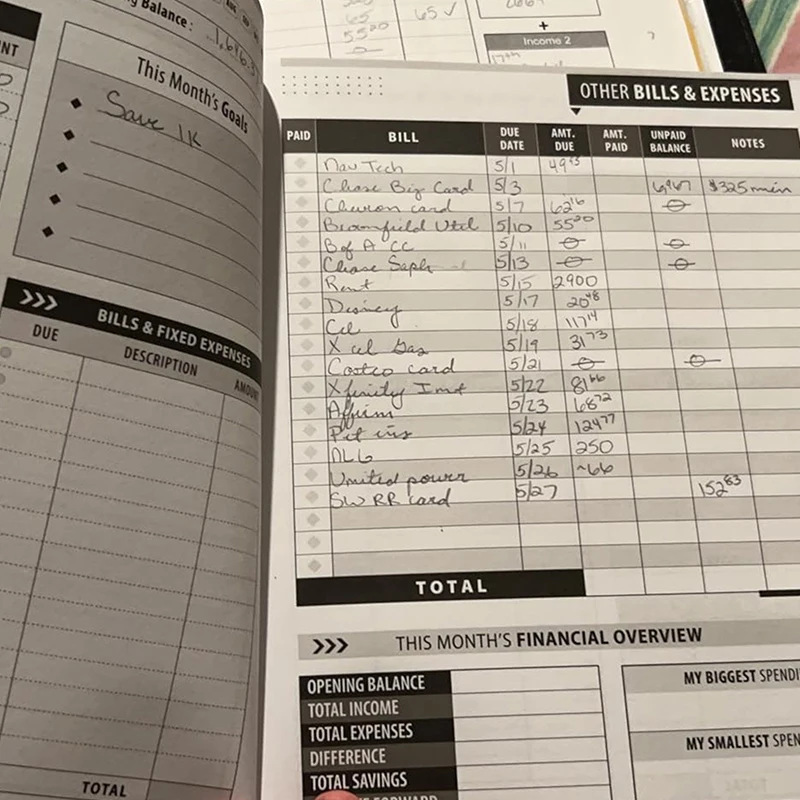 Balance:
1,616.3
This Month's Goals
Save 1K
BILLS & FIXED EXPENSES
DUE DESCRIPTION
TOTAL
65 65 ✓
55 20
+
Income 2
OTHER BILLS & EXPENSES
PAID BILL DUE DATE AMT. DUE AMT. PAID UNPAID BALANCE NOTES
Nav Tech 5/1 49
Chase Biz Card 5/3 6,967 $325 min
Chevron card 5/7 62 16 0
Broomfield Util 5/10 55 20
B of A CC 5/11 0 0
Chase Saph 5/13 0 0
Rent 5/15 2900
Disney 5/17 20 48
Cel 5/18 117 14
Xcel Gas 5/19 31 73
Costco card 5/21 0 0
Xfinity Int 5/22 81 66
Affirm 5/23 68 72
Pet ins 5/24 124 77
5/25 250
United power 5/26 ~66
SW RR card 5/27 152 83
TOTAL
THIS MONTH'S FINANCIAL OVERVIEW
OPENING BALANCE
TOTAL INCOME
TOTAL EXPENSES
DIFFERENCE
TOTAL SAVINGS
MY BIGGEST
MY SMALLEST